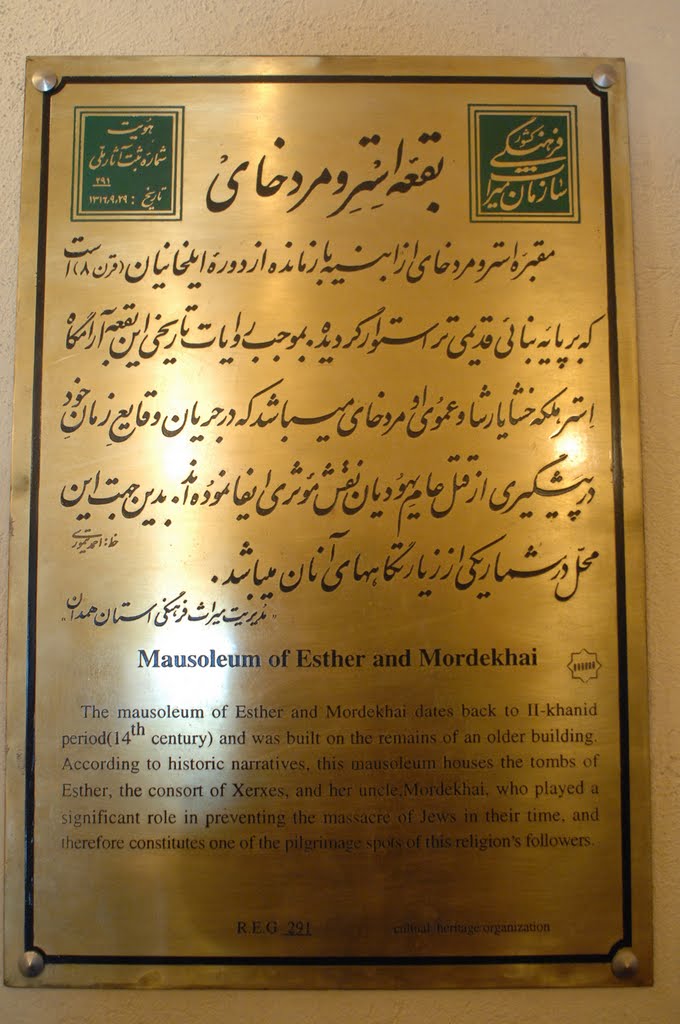 هویت
شماره ثبت آثار ملی
۲۹۱
تاریخ :
بقعه اِستِر و مردخای
سازمان میراث
فرهنگی کشور
مقبره استر و مردخای از ابنیه بازمانده از دوره ایلخانیان (قرن ۸) است
که بر پایه بنائی قدیمی تر استوار گردیده. بموجب روایات تاریخی این بقعه آرامگاه
اِستر ملکه خشایارشا و عموی او مردخای میباشد که در جریان وقایع زمانِ خود
در پیشگیری از قتل عام یهودیان نقش مؤثری ایفا نموده اند. بدین جهت این
خط: احمد تیموری
محلّ در شمار یکی از زیارتگاههای آنان میباشد.
"مدیریت میراث فرهنگی استان همدان"
Mausoleum of Esther and Mordekhai
The mausoleum of Esther and Mordekhai dates back to II-khanid
period(14th century) and was built on the remains of an older building.
According to historic narratives, this mausoleum houses the tombs of
Esther, the consort of Xerxes, and her uncle,Mordekhai, who played a
significant role in preventing the massacre of Jews in their time, and
therefore constitutes one of the pilgrimage spots of this religion's followers.
R.E.G 291
cultural heritage organization